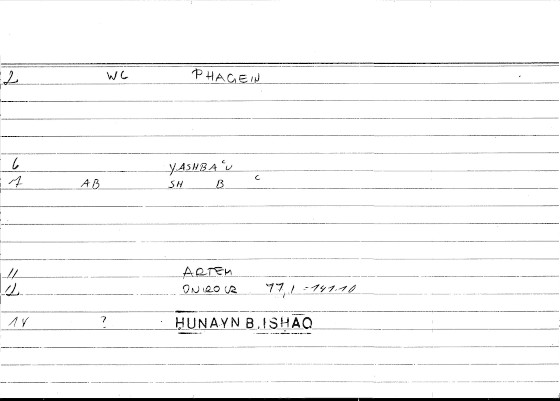 2 WC PHAGEIN
6 YASHBAʿU
7 AB SH B ʿ
11 ARTEM
12 ONIROCR 77,1 = 141.10
14 ? ḤUNAYN B. ISḤĀQ